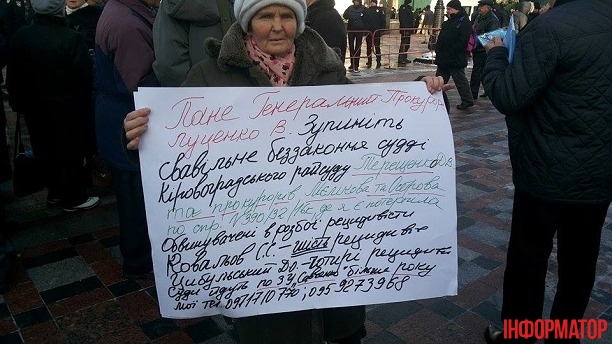 Пане Генеральний Прокурор
Луценко В. Зупиніть
свавільне беззаконня судді
Кіровоградського райсуду Терещенко
та прокурорів Мєлікова та
по спр. № 390/92/ де я є потерпіла
Обвинувачені в розбої рецидивісти
Ковальов С.С. – шість рецидивів
Цибульський – чотири рецидиви
Суди йдуть по більше року
мої тел 0971710770; 0959273968
ІНФОРМАТОР